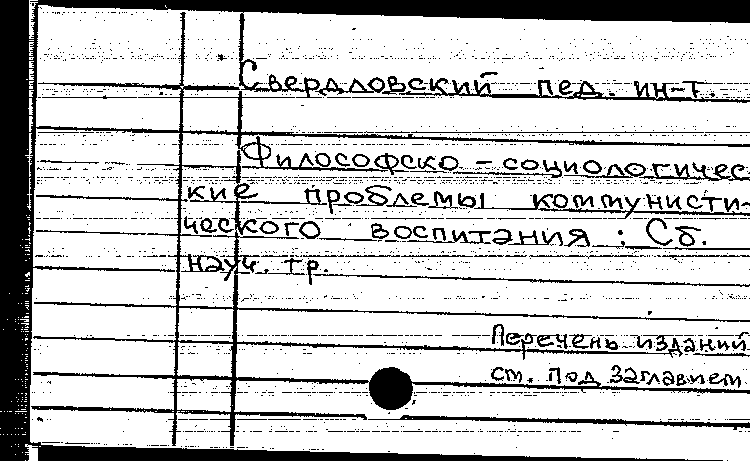 Свердловский пед. ин-т.
Философско-социологичес
кие проблемы коммунисти-
ческого воспитания : Сб.
науч. тр.
Перечень изданий
см. под заглавием